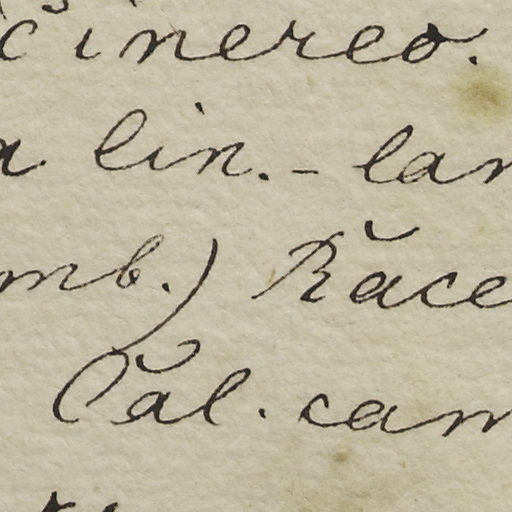 cinereo.
a lin. - lan
mb.) Răce
Căl. cam